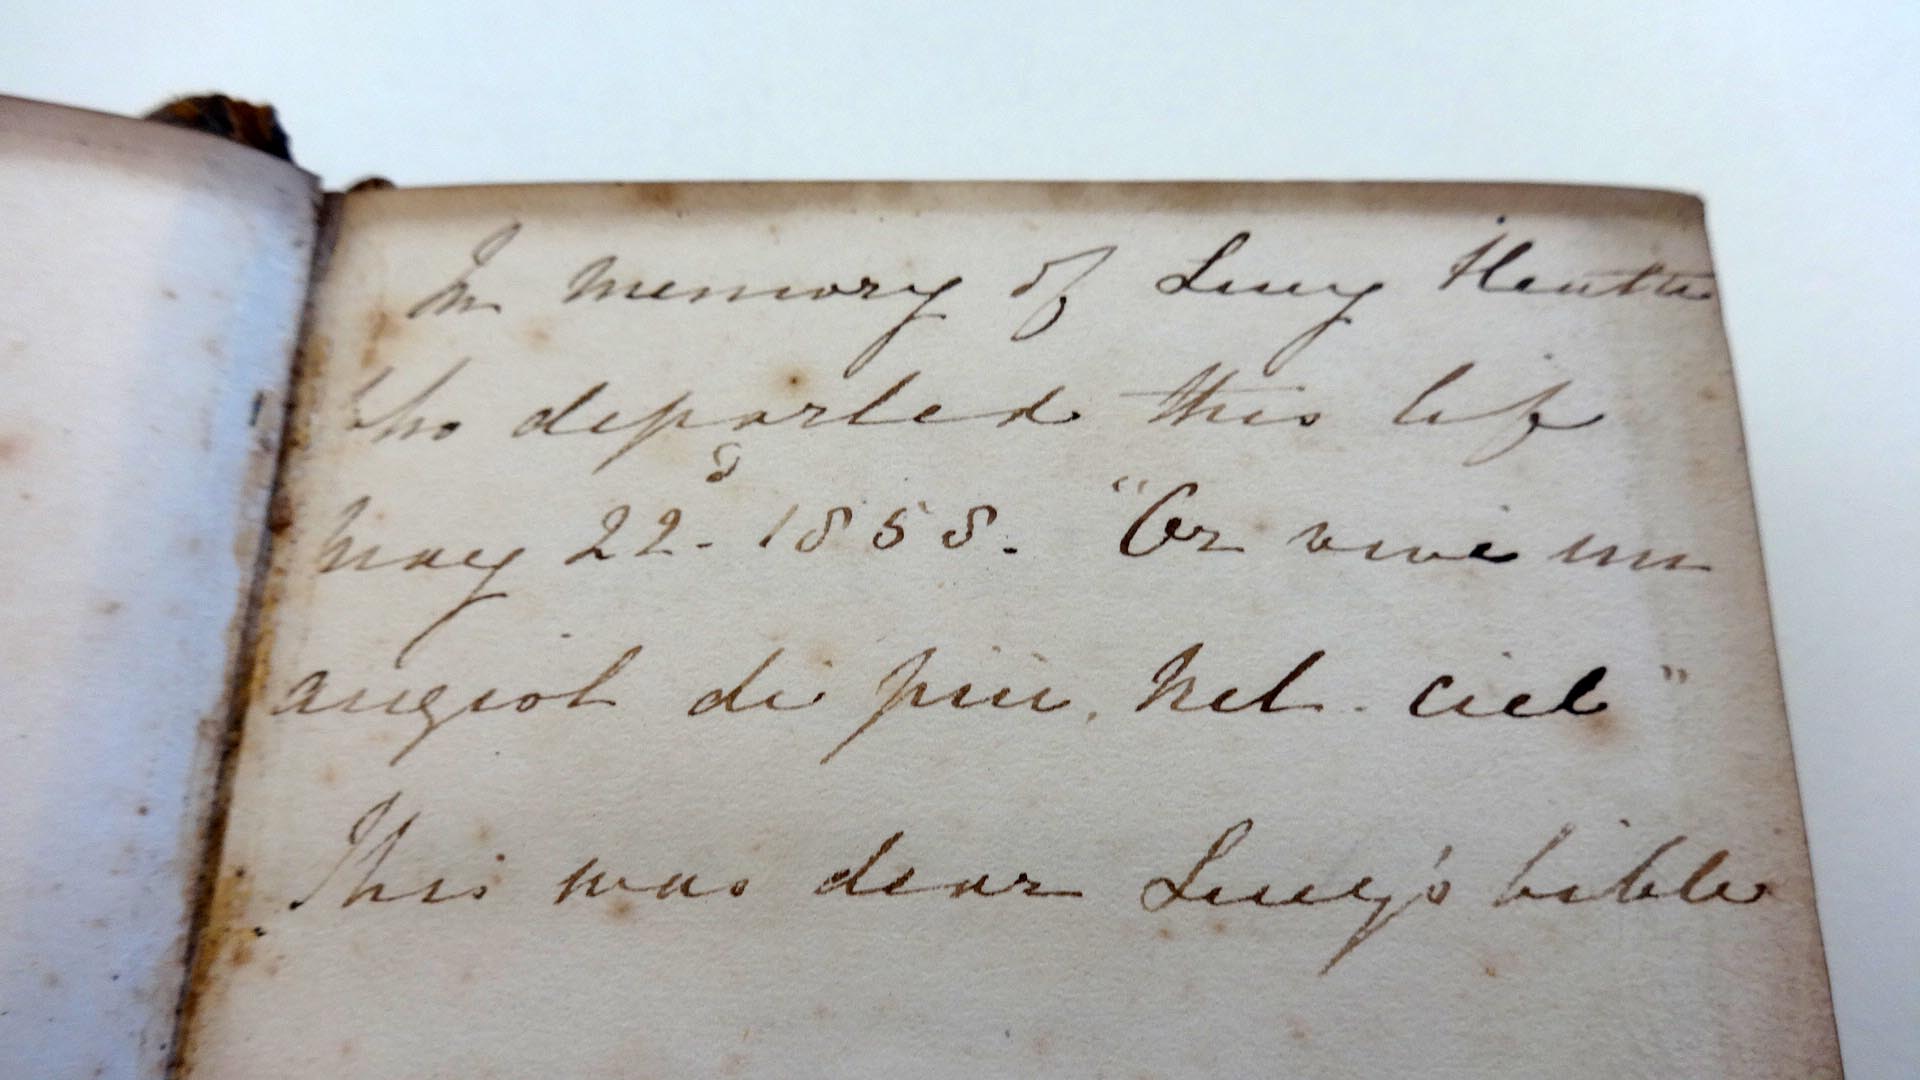 In memory of Lucy
who departed this life
May 22d. 1858. "Or vive un
angiol di più, nel ciel"
This was dear Lucy's bible